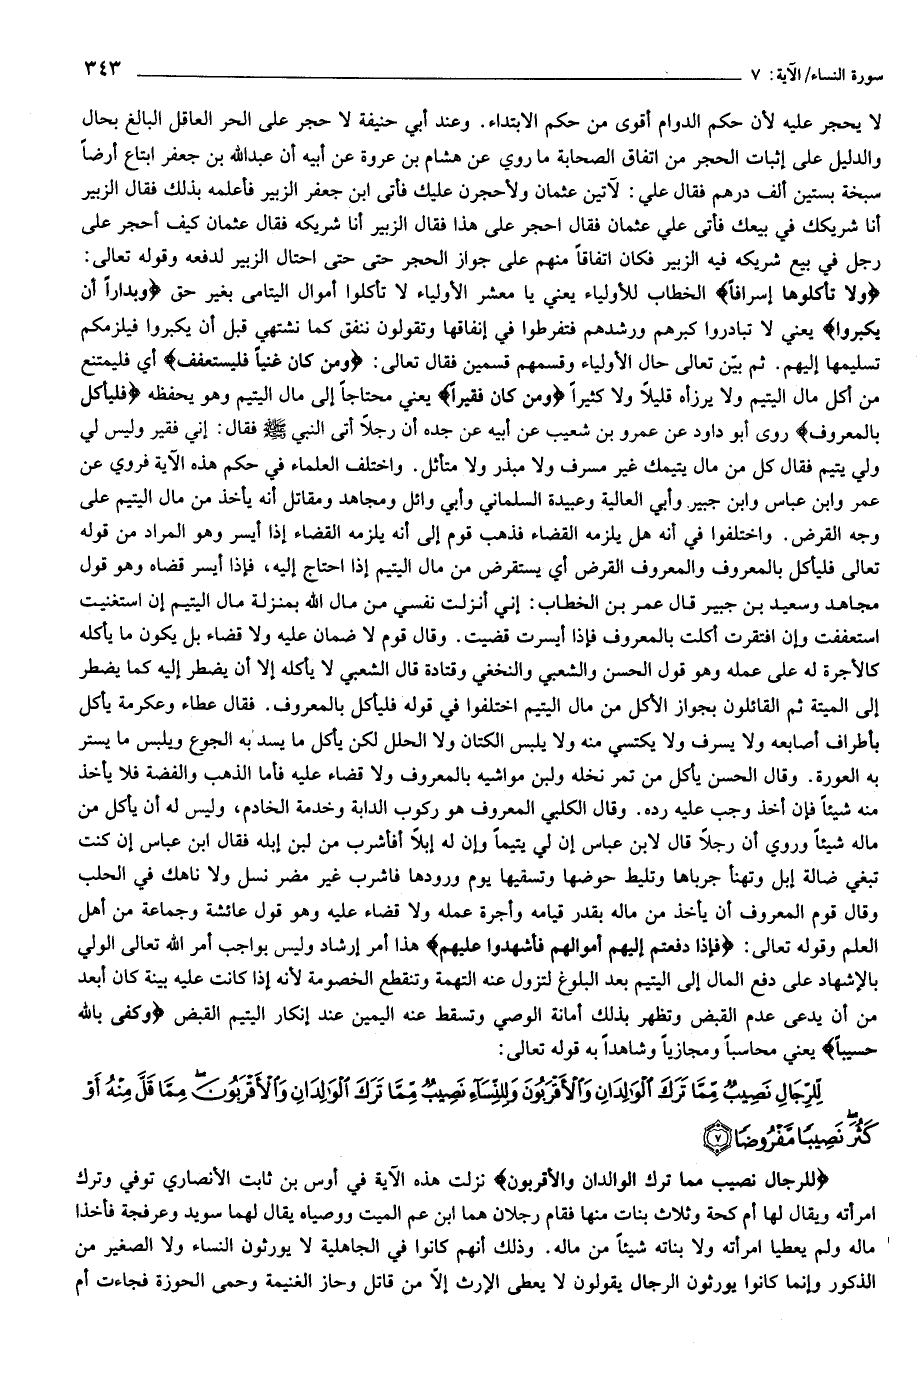 سورة النساء/ الآية: ٧ ٣٤٣
لا يحجر عليه لأن حكم الدوام أقوى من حكم الابتداء. وعند أبي حنيفة لا حجر على الحر العاقل البالغ بحال
والدليل على إثبات الحجر من اتفاق الصحابة ما روي عن هشام بن عروة عن أبيه أن عبدالله بن جعفر ابتاع أرضاً
سبخة بستين ألف درهم فقال علي: لآتين عثمان ولأحجرن عليك فأتى ابن جعفر الزبير فأعلمه بذلك فقال الزبير
أنا شريكك في بيعك فأتى علي عثمان فقال احجر على هذا فقال الزبير أنا شريكه فقال عثمان كيف أحجر على
رجل في بيع شريكه فيه الزبير فكان اتفاقاً منهم على جواز الحجر حتى حتى احتال الزبير لدفعه وقوله تعالى:
﴿ولا تأكلوها إسرافاً﴾ الخطاب للأولياء يعني يا معشر الأولياء لا تأكلوا أموال اليتامى بغير حق ﴿وبداراً أن
يكبروا﴾ يعني لا تبادروا كبرهم ورشدهم فتفرطوا في إنفاقها وتقولون ننفق كما نشتهي قبل أن يكبروا فيلزمكم
تسليمها إليهم. ثم بيّن تعالى حال الأولياء وقسمهم قسمين فقال تعالى: ﴿ومن كان غنياً فليستعفف﴾ أي فليمتنع
من أكل مال اليتيم ولا يرزأه قليلاً ولا كثيراً ﴿ومن كان فقيراً﴾ يعني محتاجاً إلى مال اليتيم وهو يحفظه ﴿فليأكل
بالمعروف﴾ روى أبو داود عن عمرو بن شعيب عن أبيه عن جده أن رجلاً أتى النبي ﷺ فقال: إني فقير وليس لي
ولي يتيم فقال كل من مال يتيمك غير مسرف ولا مبذر ولا متأثل. واختلف العلماء في حكم هذه الآية فروي عن
عمر وابن عباس وابن جبير وأبي العالية وعبيدة السلماني وأبي وائل ومجاهد ومقاتل أنه يأخذ من مال اليتيم على
وجه القرض. واختلفوا في أنه هل يلزمه القضاء فذهب قوم إلى أنه يلزمه القضاء إذا أيسر وهو المراد من قوله
تعالى فليأكل بالمعروف والمعروف القرض أي يستقرض من مال اليتيم إذا احتاج إليه، فإذا أيسر قضاه وهو قول
مجاهد وسعيد بن جبير قال عمر بن الخطاب: إني أنزلت نفسي من مال الله بمنزلة مال اليتيم إن استغنيت
استعففت وإن افتقرت أكلت بالمعروف فإذا أيسرت قضيت. وقال قوم لا ضمان عليه ولا قضاء بل يكون ما يأكله
كالأجرة له على عمله وهو قول الحسن والشعبي والنخعي وقتادة قال الشعبي لا يأكله إلا أن يضطر إليه كما يضطر
إلى الميتة ثم القائلون بجواز الأكل من مال اليتيم اختلفوا في قوله فليأكل بالمعروف. فقال عطاء وعكرمة يأكل
بأطراف أصابعه ولا يسرف ولا يكتسي منه ولا يلبس الكتان ولا الحلل لكن يأكل ما يسد به الجوع ويلبس ما يستر
به العورة. وقال الحسن يأكل من تمر نخله ولبن مواشيه بالمعروف ولا قضاء عليه فأما الذهب والفضة فلا يأخذ
منه شيئاً فإن أخذ وجب عليه رده. وقال الكلبي المعروف هو ركوب الدابة وخدمة الخادم، وليس له أن يأكل من
ماله شيئاً وروي أن رجلاً قال لابن عباس إن لي يتيماً وإن له إبلاً أفأشرب من لبن إبله فقال ابن عباس إن كنت
تبغي ضالة إبل وتهنأ جرباها وتليط حوضها وتسقيها يوم ورودها فاشرب غير مضر نسل ولا ناهك في الحلب
وقال قوم المعروف أن يأخذ من ماله بقدر قيامه وأجرة عمله ولا قضاء عليه وهو قول عائشة وجماعة من أهل
العلم وقوله تعالى: ﴿فإذا دفعتم إليهم أموالهم فأشهدوا عليهم﴾ هذا أمر إرشاد وليس بواجب أمر الله تعالى الولي
بالإشهاد على دفع المال إلى اليتيم بعد البلوغ لتزول عنه التهمة وتنقطع الخصومة لأنه إذا كانت عليه بينة كان أبعد
من أن يدعى عدم القبض وتظهر بذلك أمانة الوصي وتسقط عنه اليمين عند إنكار اليتيم القبض ﴿وكفى بالله
حسيباً﴾ يعني محاسباً ومجازياً وشاهداً به قوله تعالى:
لِّلرِّجَالِ نَصِيبٌ مِّمَّا تَرَكَ ٱلْوَٰلِدَانِ وَٱلْأَقْرَبُونَ وَلِلنِّسَآءِ نَصِيبٌ مِّمَّا تَرَكَ ٱلْوَٰلِدَانِ وَٱلْأَقْرَبُونَ مِمَّا قَلَّ مِنْهُ أَوْ
كَثُرَ نَصِيبًا مَّفْرُوضًا ٧
﴿للرجال نصيب مما ترك الوالدان والأقربون﴾ نزلت هذه الآية في أوس بن ثابت الأنصاري توفي وترك
امرأته ويقال لها أم كحة وثلاث بنات منها فقام رجلان هما ابن عم الميت ووصياه يقال لهما سويد وعرفجة فأخذا
ماله ولم يعطيا امرأته ولا بناته شيئاً من ماله. وذلك أنهم كانوا في الجاهلية لا يورثون النساء ولا الصغير من
الذكور وإنما كانوا يورثون الرجال يقولون لا يعطى الإرث إلّا من قاتل وحاز الغنيمة وحمى الحوزة فجاءت أم